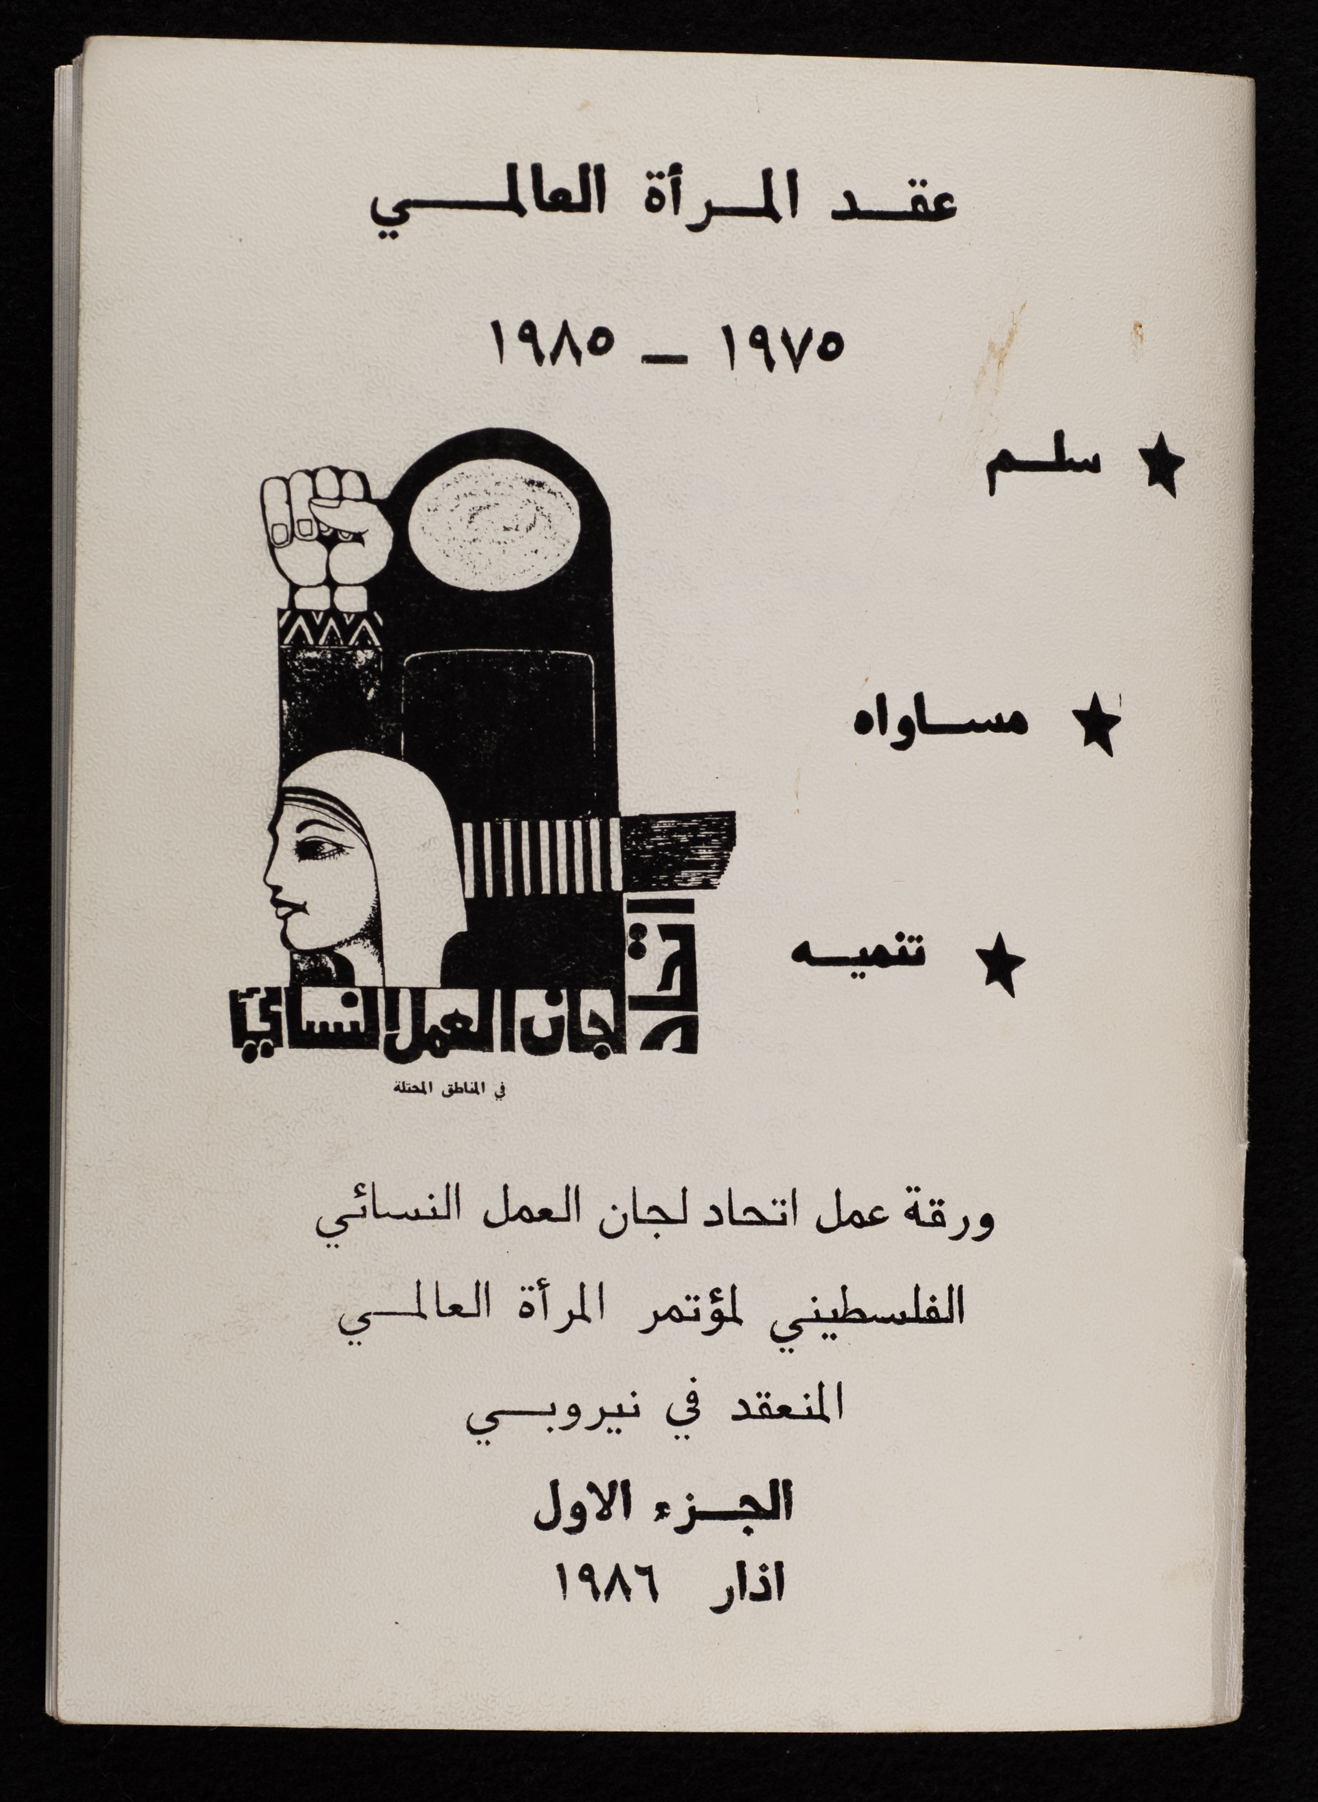 عقد المرأة العالمي
١٩٧٥ - ١٩٨٥
سلم
مساواه
تنميه
اتحاد
لجان العمل النسائي
في المناطق المحتلة
ورقة عمل اتحاد لجان العمل النسائي
الفلسطيني لمؤتمر المرأة العالمي
المنعقد في نيروبي
الجزء الاول
اذار ١٩٨٦